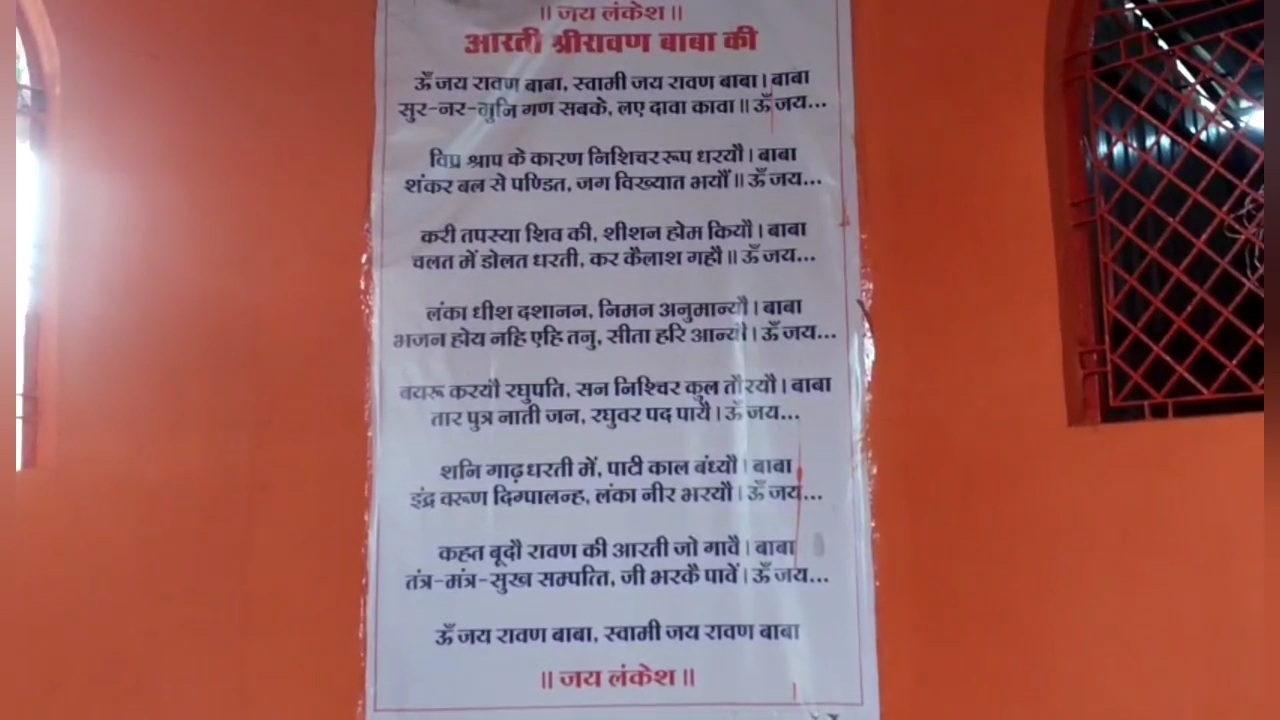 ॥ जय लंकेश ॥
आरती श्रीरावण बाबा की
ऊँ जय रावण बाबा, स्वामी जय रावण बाबा। बाबा
सुर-नर-मुनि गण सबके, लए दावा कावा॥ ऊँ जय...
विप्र श्राप के कारण निशिचर रूप धरयौ। बाबा
शंकर बल से पण्डित, जग विख्यात भयौं॥ ऊँ जय...
करी तपस्या शिव की, शीशन होम कियौ। बाबा
चलत में डोलत धरती, कर कैलाश गहौ॥ ऊँ जय...
लंका धीश दशानन, निमन अनुमान्यौ। बाबा
भजन होय नहि एहि तनु, सीता हरि आन्यौ। ऊँ जय...
बयरू करयौ रघुपति, सन निश्चिर कुल तौरयौ। बाबा
तार पुत्र नाती जन, रघुवर पद पायै। ऊँ जय...
शनि गाढ़ धरती में, पाटी काल बंध्यौ। बाबा
इंद्र वरूण दिग्पालन्ह, लंका नीर भरयौ। ऊँ जय...
कहत बूदौ रावण की आरती जो गावै। बाबा
तंत्र-मंत्र-सुख सम्पत्ति, जी भरकै पावें। ऊँ जय...
ऊँ जय रावण बाबा, स्वामी जय रावण बाबा
॥ जय लंकेश ॥